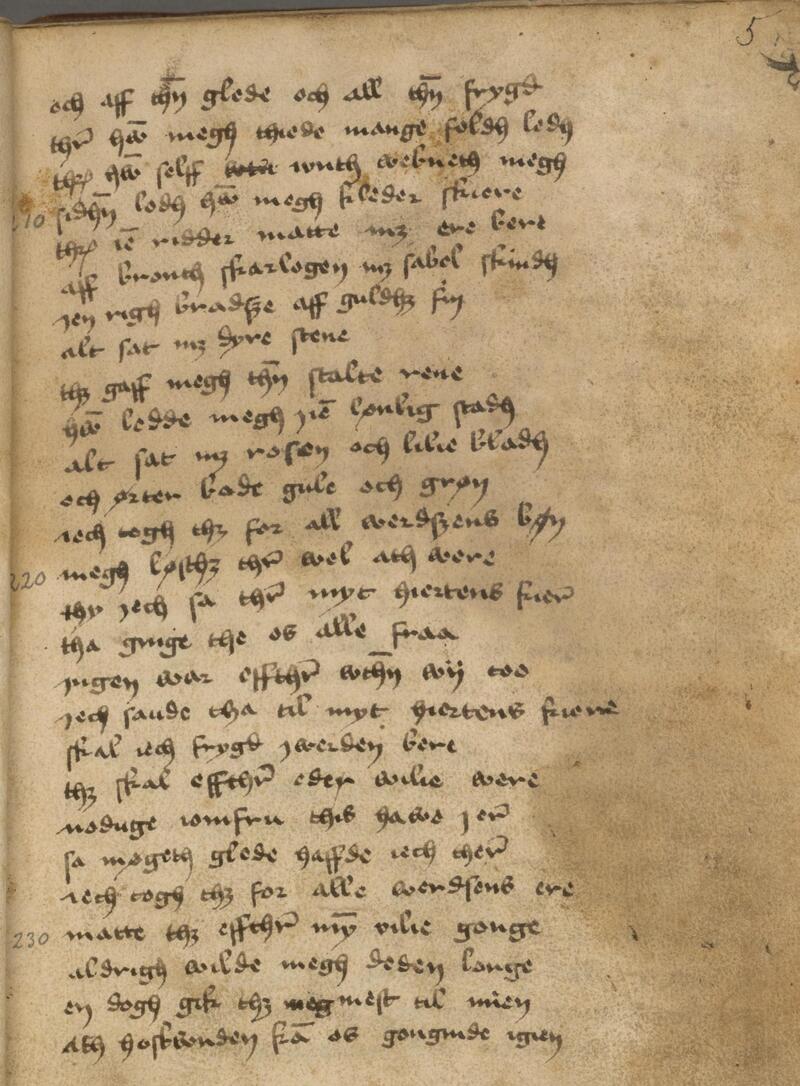 5
och aff thn̄ glede och all thn̄ frygd
thr̄ hw̄ megh thiede mange foldh ledh
thꝫ hw̄ selff wnth webneth megh
210 sidhn̄ lodh hw̄ megh kleder skiere
thꝫ ie̅ ridder matte mꝫ ere bere
aff bronth skarlogen mꝫ sabel skindh
jen righ bradsze aff guldhꝫ fin
alt sat mꝫ dyre stene
thꝫ gaff megh thn̄ stalte rene
hw̄ ledde megh jie̅ lønlig stadh
alt sat mꝫ rosen och lilie bladh
och ørter bode gule och grøn
iech togh thꝫ for all werdszens bøn
220 megh løsthꝫ thr̄ wel ath were
thy jech sa thr̄ myt hiertens kier̄
tha ginge the os alle fraa
jngen war effthr̄ wthn̄ wij too
jech saude tha til myt hiertens kiere
skal iech frygd jwerden bere
thꝫ skal effthr̄ eder wilie were
noduge iomfru this hawe j er̄
sa møgeth glede haffde iech ther̄
iech togh thꝫ for alle werdsens ere
230 matte thꝫ effthr̄ my̅ vilie gonge
aldrigh wilde megh deden longe
en dogh gik thꝫ megmest til mien
ath hoskwnden ka̅ os gonginde igien